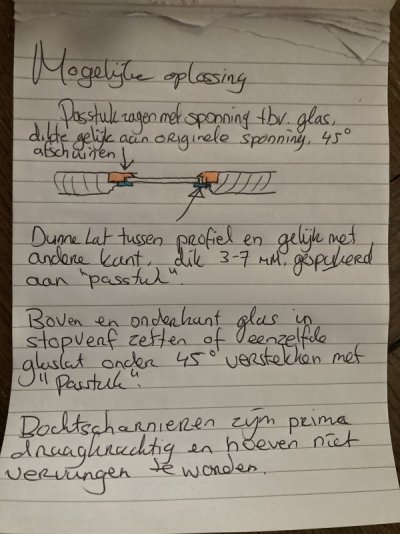 Mogelijke oplossing
Passtuk zagen met sponning tbv. glas,
dikte gelijk aan originele sponning, 45°
afschuinen
Dunne lat tussen profiel en gelijk met
andere kant, dik 3-7 mm, gespijkerd
aan "passtuk".
Boven en onderkant glas in
stopverf zetten of eenzelfde
glaslat onder 45° verstekken met
"Passtuk".
Bochtscharnieren zijn prima
draagkrachtig en hoeven niet
vervangen te worden.